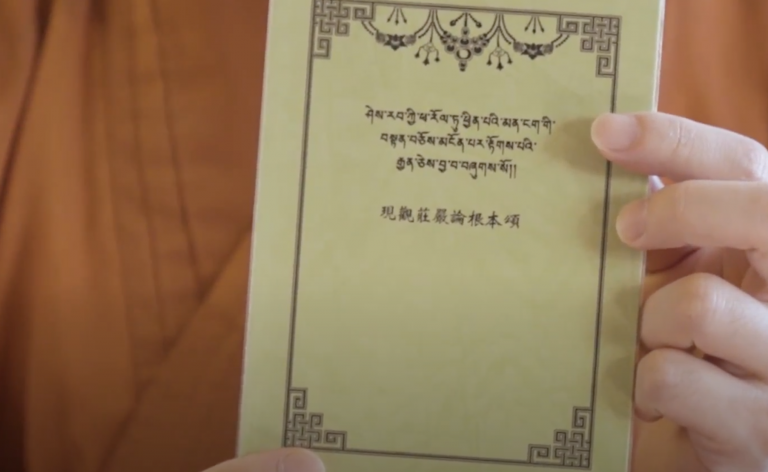 ཤེས་རབ་ཀྱི་ཕ་རོལ་ཏུ་ཕྱིན་པའི་མན་ངག་གི་
བསྟན་བཅོས་མངོན་པར་རྟོགས་པའི་
རྒྱན་ཅེས་བྱ་བ་བཞུགས་སོ།།
現觀莊嚴論根本頌